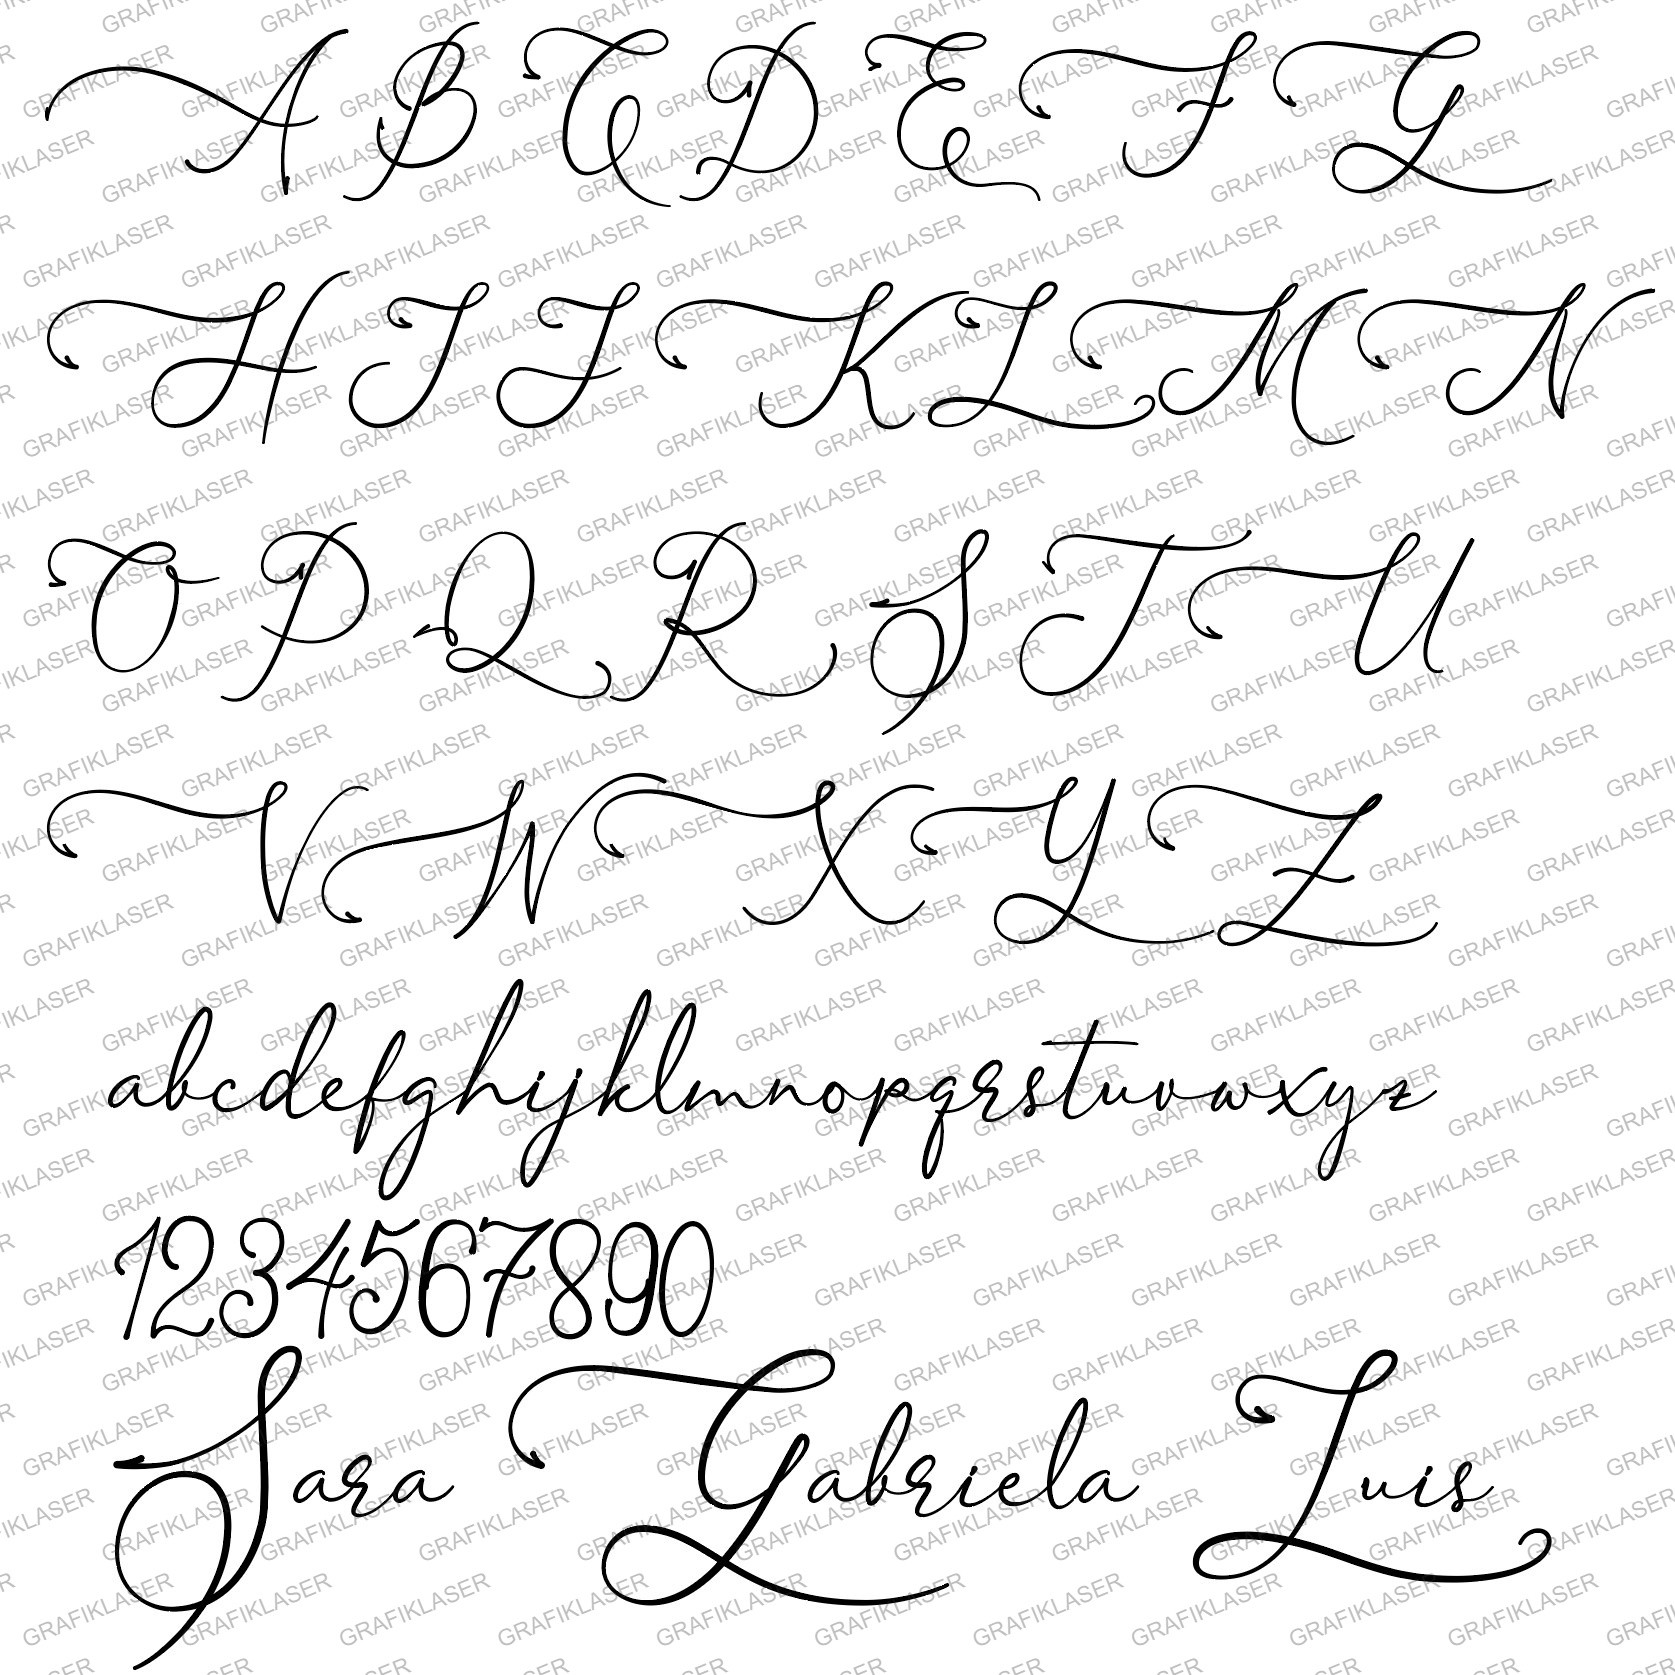 A B C D E F G
H I J K L M N
O P Q R S T U
V W X Y Z
abcdefghijklmnopqrstuvwxyz
1234567890
Sara Gabriela Luis
GRAFIKLASER